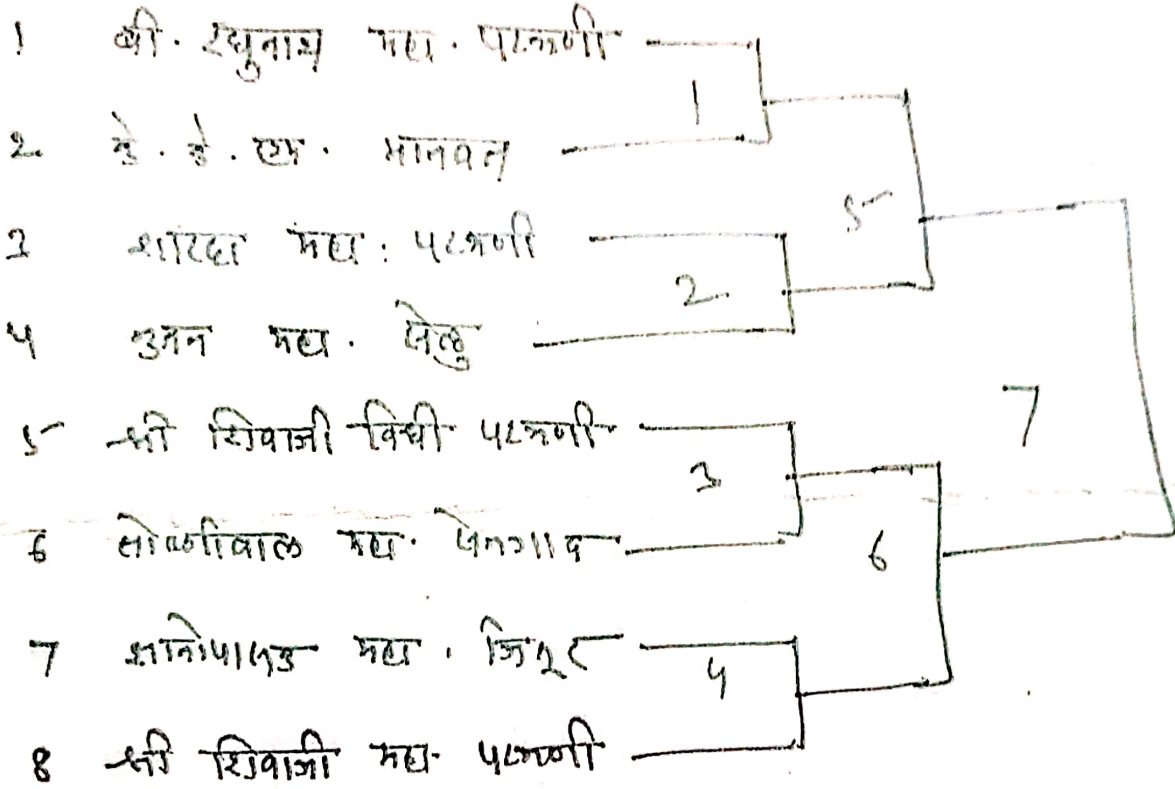 1 बी. रघुनाथ महा. परभणी
2 के. के. एम. मानवत
3 शारदा महा. परभणी
4 नुतन महा. सेलु
5 श्री शिवाजी विधी परभणी
6 महा.
7 ज्ञानोपासक महा. जिंतूर
8 श्री शिवाजी महा. परभणी
1
2
3
4
5
6
7